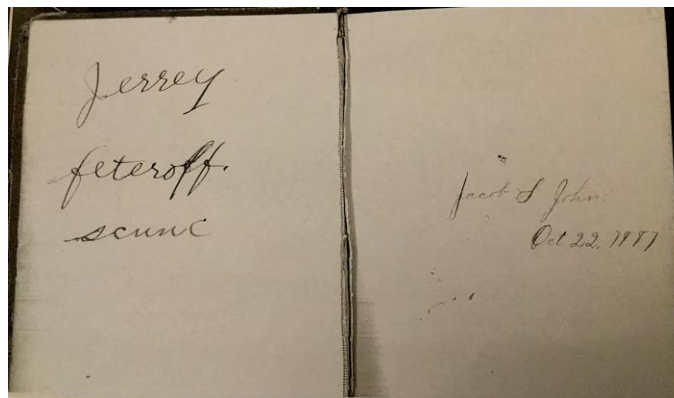 Jerrey
feteroff.
scunc
Jacob S John
Oct 22, 1887